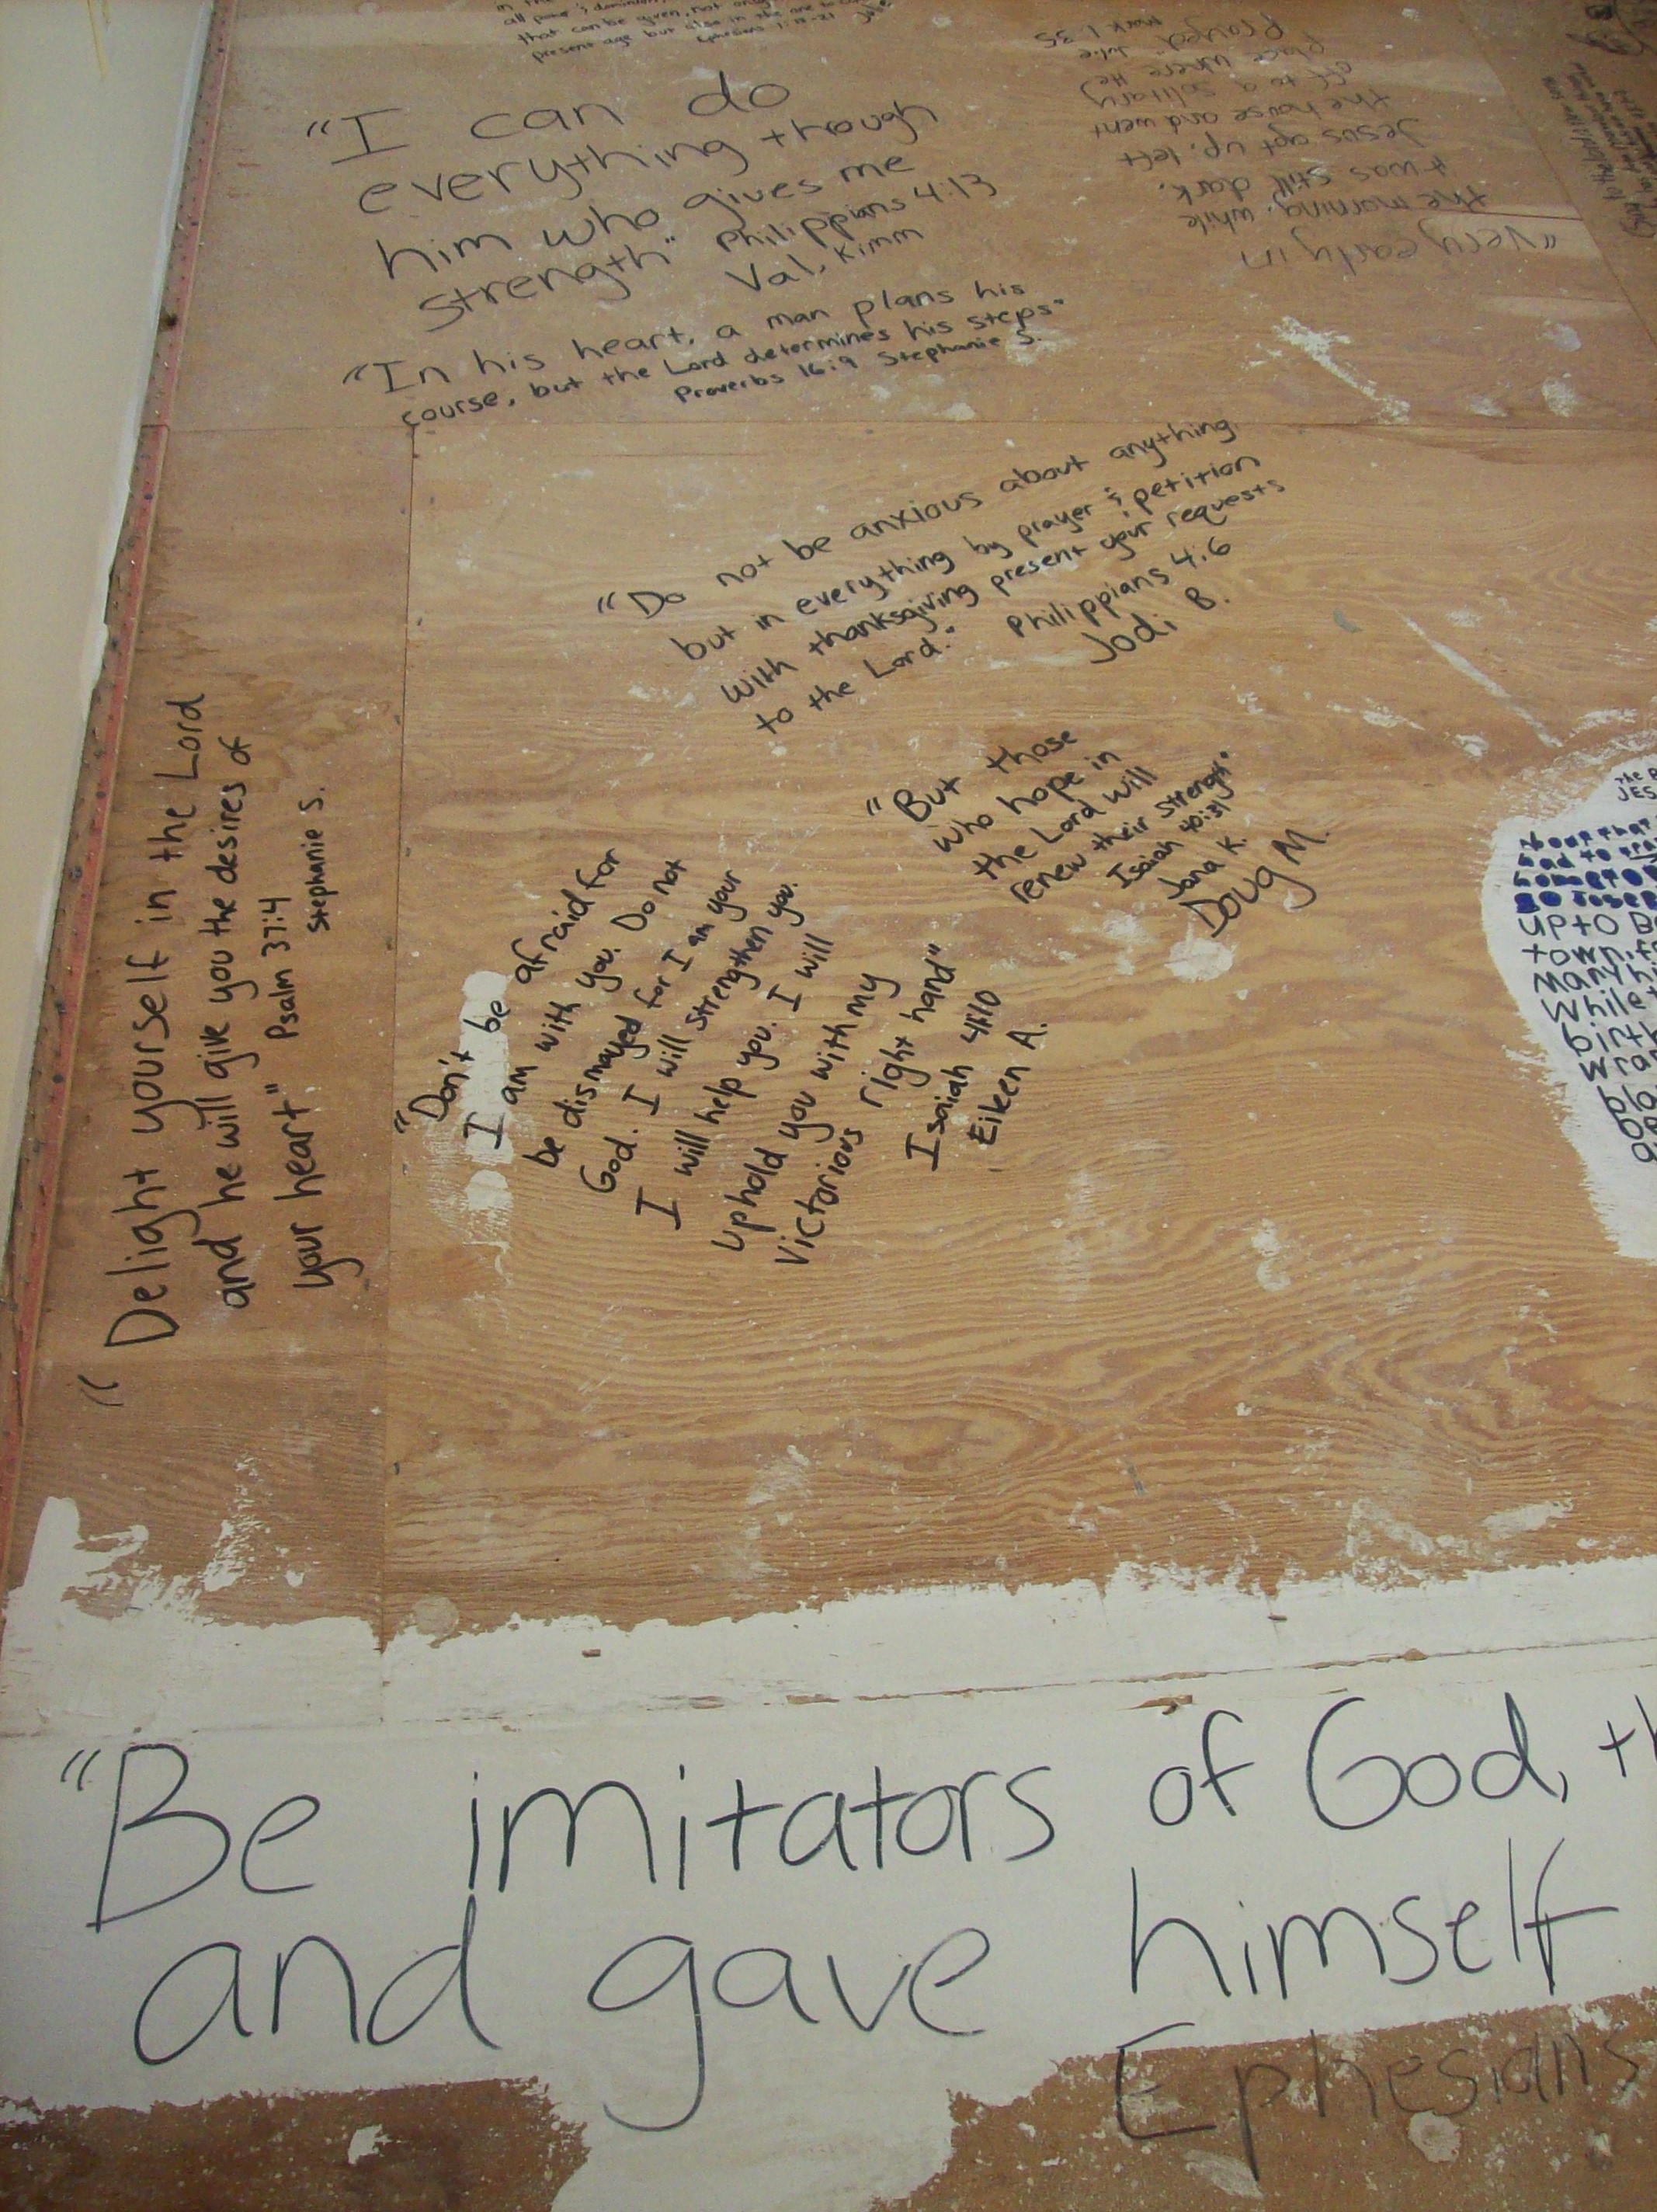 all power & dominion
that can be given, not only
present age but also in the one to come
Ephesians 1:18-21
"I can do
everything through
him who gives me
strength" Philippians 4:13
Val, Kimm
"In his heart, a man plans his
course, but the Lord determines his steps"
Proverbs 16:9 Stephanie S.
"Very early in
the morning, while
it was still dark,
Jesus got up, left
the house and went
off to a solitary
place where He
Prayed" Julie
Mark 1:35
"Do not be anxious about anything
but in everything by prayer & petition
with thanksgiving present your requests
to the Lord." Philippians 4:6
Jodi B.
"But those
who hope in
the Lord will
renew their strength"
Isaiah 40:31
Jana K.
Doug M.
"Delight yourself in the Lord
and he will give you the desires of
your heart" Psalm 37:4
Stephanie S.
"Don't be afraid for
I am with you. Do not
be dismayed for I am your
God. I will strengthen you.
I will help you. I will
uphold you with my
victorious right hand"
Isaiah 41:10
Eileen A.
The
JES
About that
had to
home
so Josep
up to Be
town, f
many hi
While t
birth
wra
"Be imitators of God, th
and gave himself
Ephesians